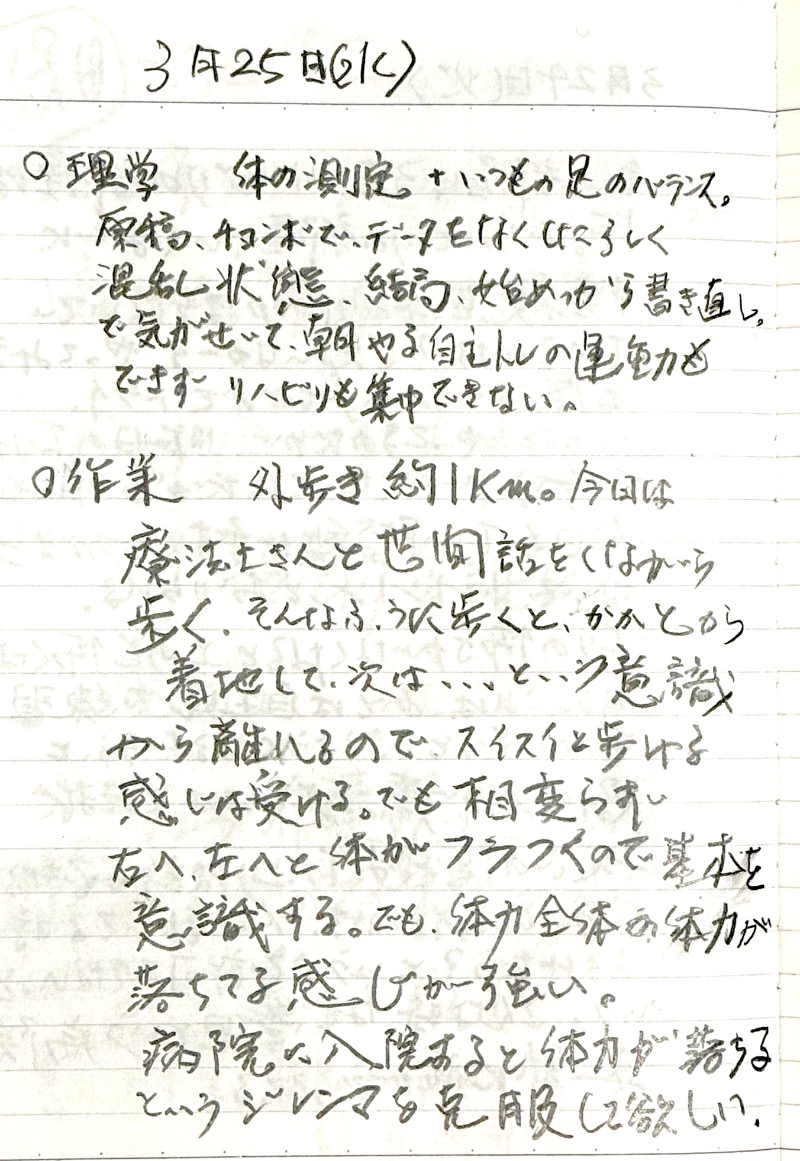 3月25日(水)
○ 理学　体の測定 + いつもの足のバランス。
原稿、チョンボで、データをなくしたらしく
混乱状態、結局、始めっから書き直し。
で気がせいて、朝やる自主トレの運動も
できず リハビリも集中できない。
○作業　外歩き約1Km。今日は
療法士さんと世間話をしながら
歩く。そんなふうに歩くと、かかとから
着地して、次は、、、という意識
から離れるので、スイスイと歩ける
感じは受ける。でも相変らず
右へ、左へと体がフラつくので基本を
意識する。でも、体力全体の体力が
落ちてる感じが強い。
病院に入院すると体力が落ちる
というジレンマを克服して欲しい。